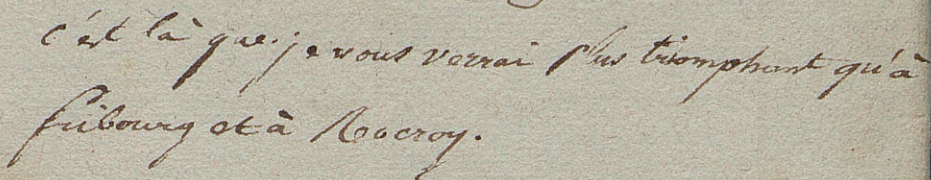 c'est là que je vous verrai plus triomphant qu'à
fribourg et à Rocroy.